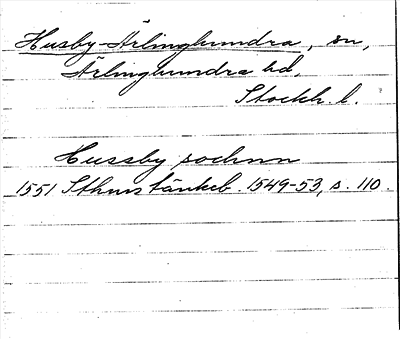 Husby-Ärlinghundra, sn,
Ärlinghundra hd,
Stockh. l.
Hussby sochnn
1551 Sthms tänkeb. 1549-53, s. 110.